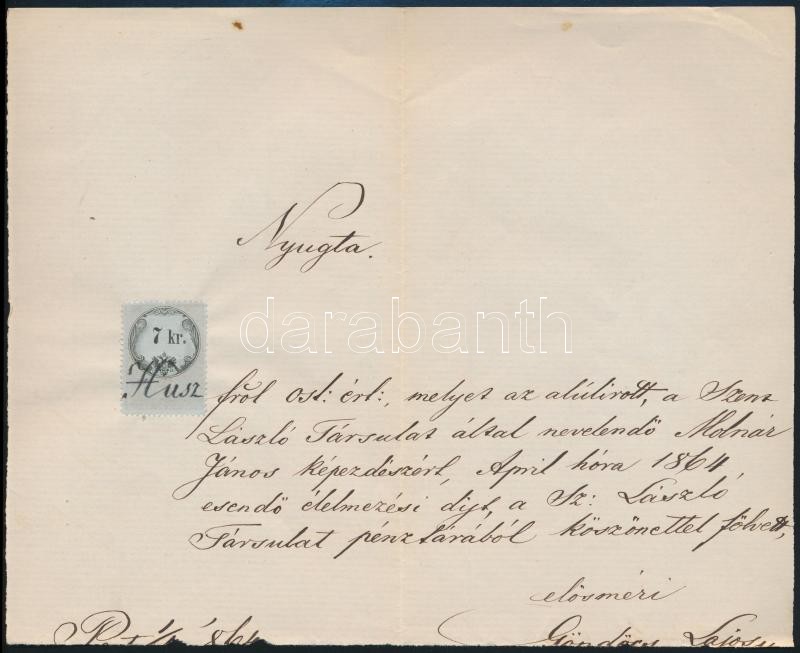 Nyugta.
7 kr.
Husz
fról ost: ért:, melyet az alúlirott, a Szent
László Társulat által nevelendö Molnár
János képezdészért, April hóra 1864,
esendö élelmezési dijt, a Sz: László
Társulat pénztárából köszönettel fölvett,
elösméri
Lajos
darabanth